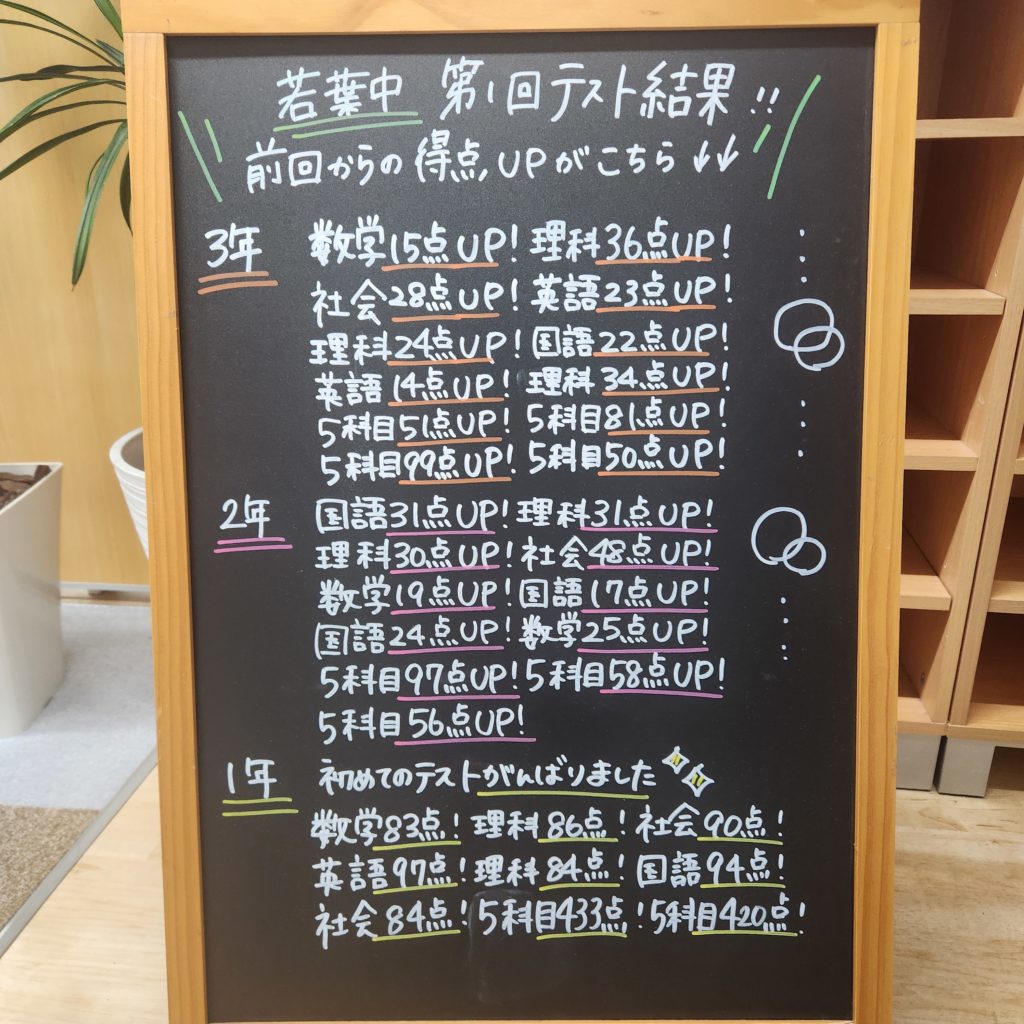 若葉中 第1回テスト結果!!
前回からの得点UPがこちら↓↓
3年 数学15点UP! 理科36点UP!
社会28点UP! 英語23点UP!
理科24点UP! 国語22点UP!
英語14点UP! 理科34点UP!
5科目51点UP! 5科目81点UP!
5科目99点UP! 5科目50点UP!
2年 国語31点UP! 理科31点UP!
理科30点UP! 社会48点UP!
数学19点UP! 国語17点UP!
国語24点UP! 数学25点UP!
5科目97点UP! 5科目58点UP!
5科目56点UP!
1年 初めてのテストがんばりました
数学83点! 理科86点! 社会90点!
英語97点! 理科84点! 国語94点!
社会84点! 5科目433点! 5科目420点!